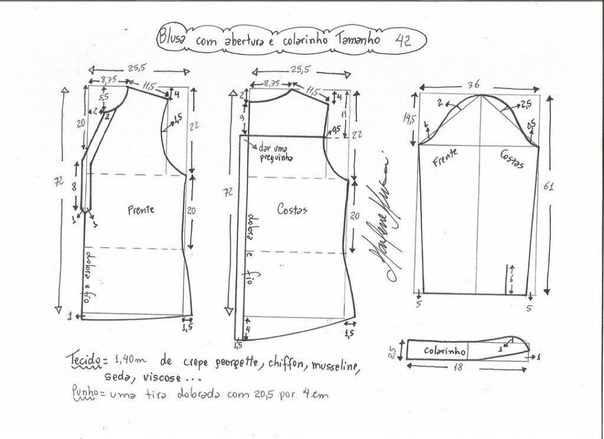 Blusa com abertura e colarinho Tamanho 42
25,5
8,75 11,5
4
5,5
2
2
20
1,5
22
8
72
1
1
Frente
20
dobra e fio
1
1,5
25,5
8,75 11,5
2
4
9
11
0,5
22
dar uma
preguinha
72
Costas
20
dobra e fio
4
1,5
1,5
36
2
2,5
14,5
1
0,5
Frente
Costas
61
5
5
8,5
colarinho
1
1
18
Tecido = 1,40m de crepe georgette, chiffon, musseline,
seda, viscose...
Punho = uma tira dobrada com 20,5 por 4 cm